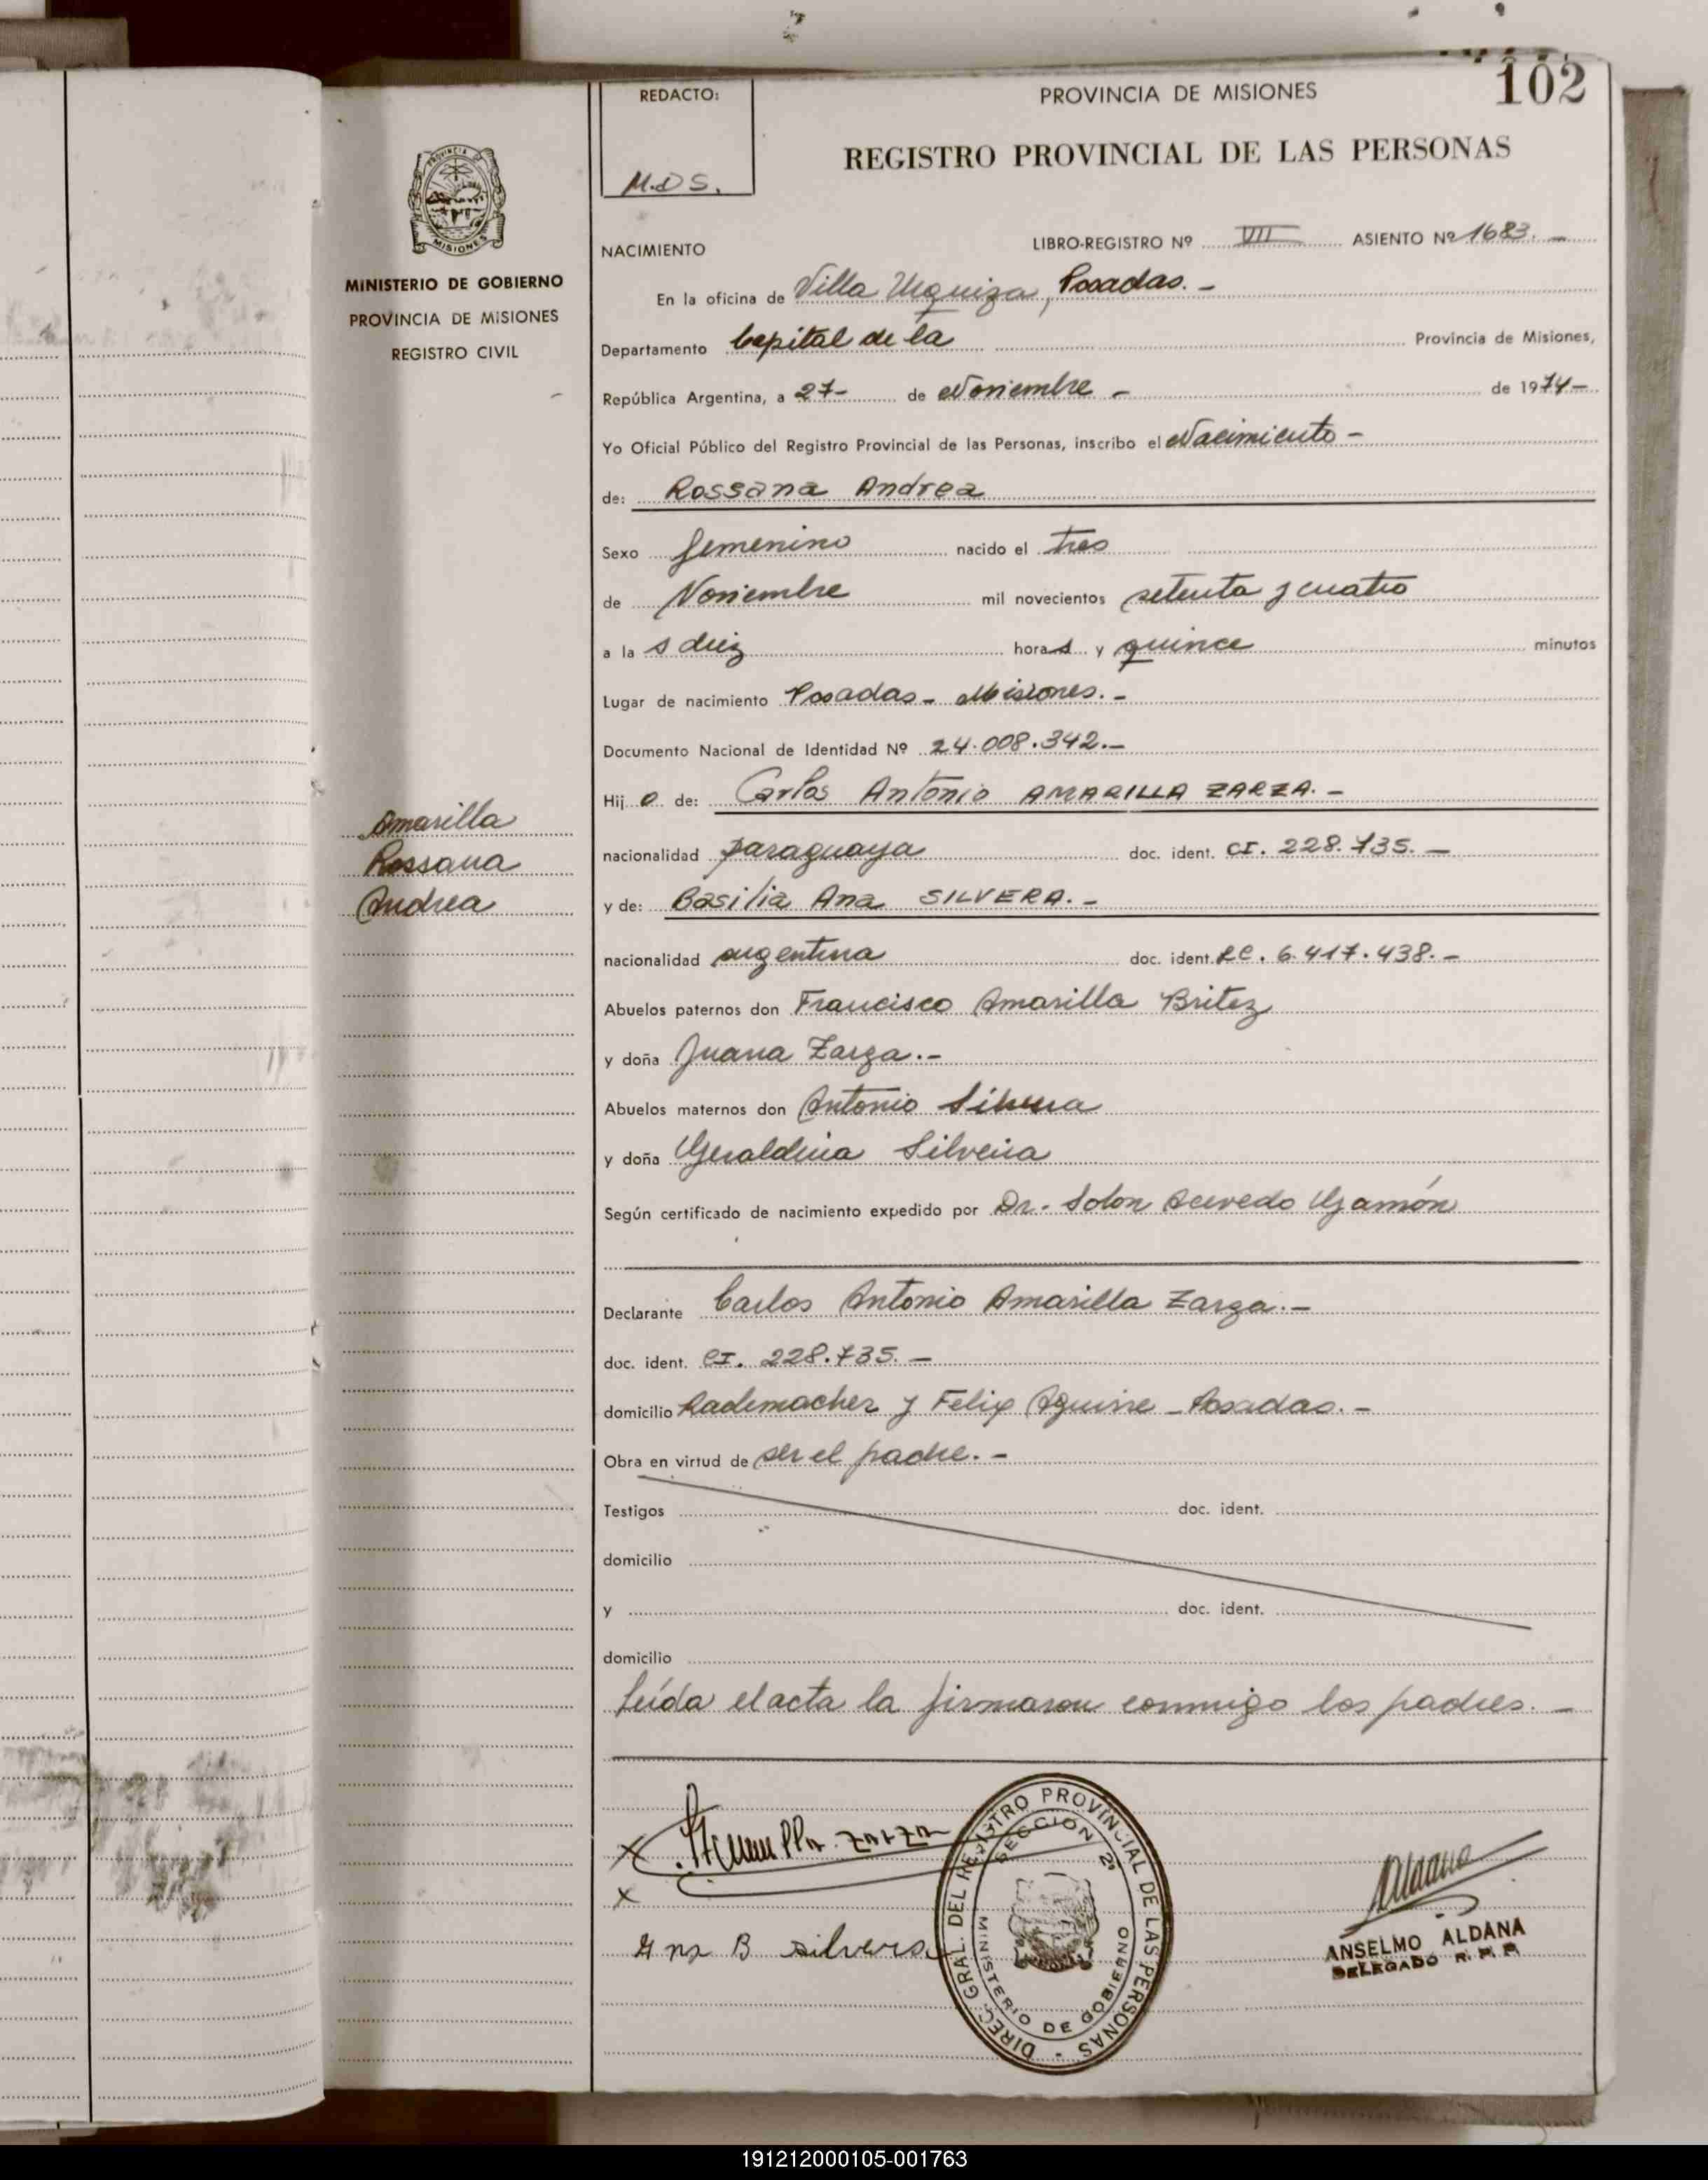 102
REDACTO:
M.D S.
PROVINCIA DE MISIONES
REGISTRO PROVINCIAL DE LAS PERSONAS
PROVINCIA DE
MISIONES
MINISTERIO DE GOBIERNO
PROVINCIA DE MISIONES
REGISTRO CIVIL
NACIMIENTO LIBRO-REGISTRO Nº VIII ASIENTO Nº 1683.-
En la oficina de Villa Urquiza, Posadas.-
Departamento Capital de la Provincia de Misiones,
República Argentina, a 27- de Noviembre - de 1974-
Yo Oficial Público del Registro Provincial de las Personas, inscribo el Nacimiento -
de: Rossana Andrea
Sexo femenino nacido el tres
de Noviembre mil novecientos setenta y cuatro
a la s diez horas y quince minutos
Lugar de nacimiento Posadas - Misiones.-
Documento Nacional de Identidad Nº 24.008.342.-
Hij a de: Carlos Antonio AMARILLA ZARZA.-
nacionalidad paraguaya doc. ident. CI. 228.735.-
y de: Basilia Ana SILVERA.-
nacionalidad argentina doc. ident. LC. 6.417.438.-
Abuelos paternos don Francisco Amarilla Britez
y doña Juana Zarza.-
Abuelos maternos don Antonio Silvera
y doña Geraldina Silveira
Según certificado de nacimiento expedido por Dr. Solon Acevedo Gamón
Declarante Carlos Antonio Amarilla Zarza.-
doc. ident. CI. 228.735.-
domicilio Rademacher y Felix Aguirre - Posadas.-
Obra en virtud de ser el padre.-
Testigos doc. ident.
domicilio
y doc. ident.
domicilio
Leída el acta la firmaron conmigo los padres.-
Amarilla
Rossana
Andrea
x Amarilla Zarza
x
Ana B silvera
DIREC. GRAL. DEL REGISTRO PROVINCIAL DE LAS PERSONAS -
SECCION 2ª
MINISTERIO DE GOBIERNO
Aldana
ANSELMO ALDANA
DELEGADO R. P. P.
191212000105-001763